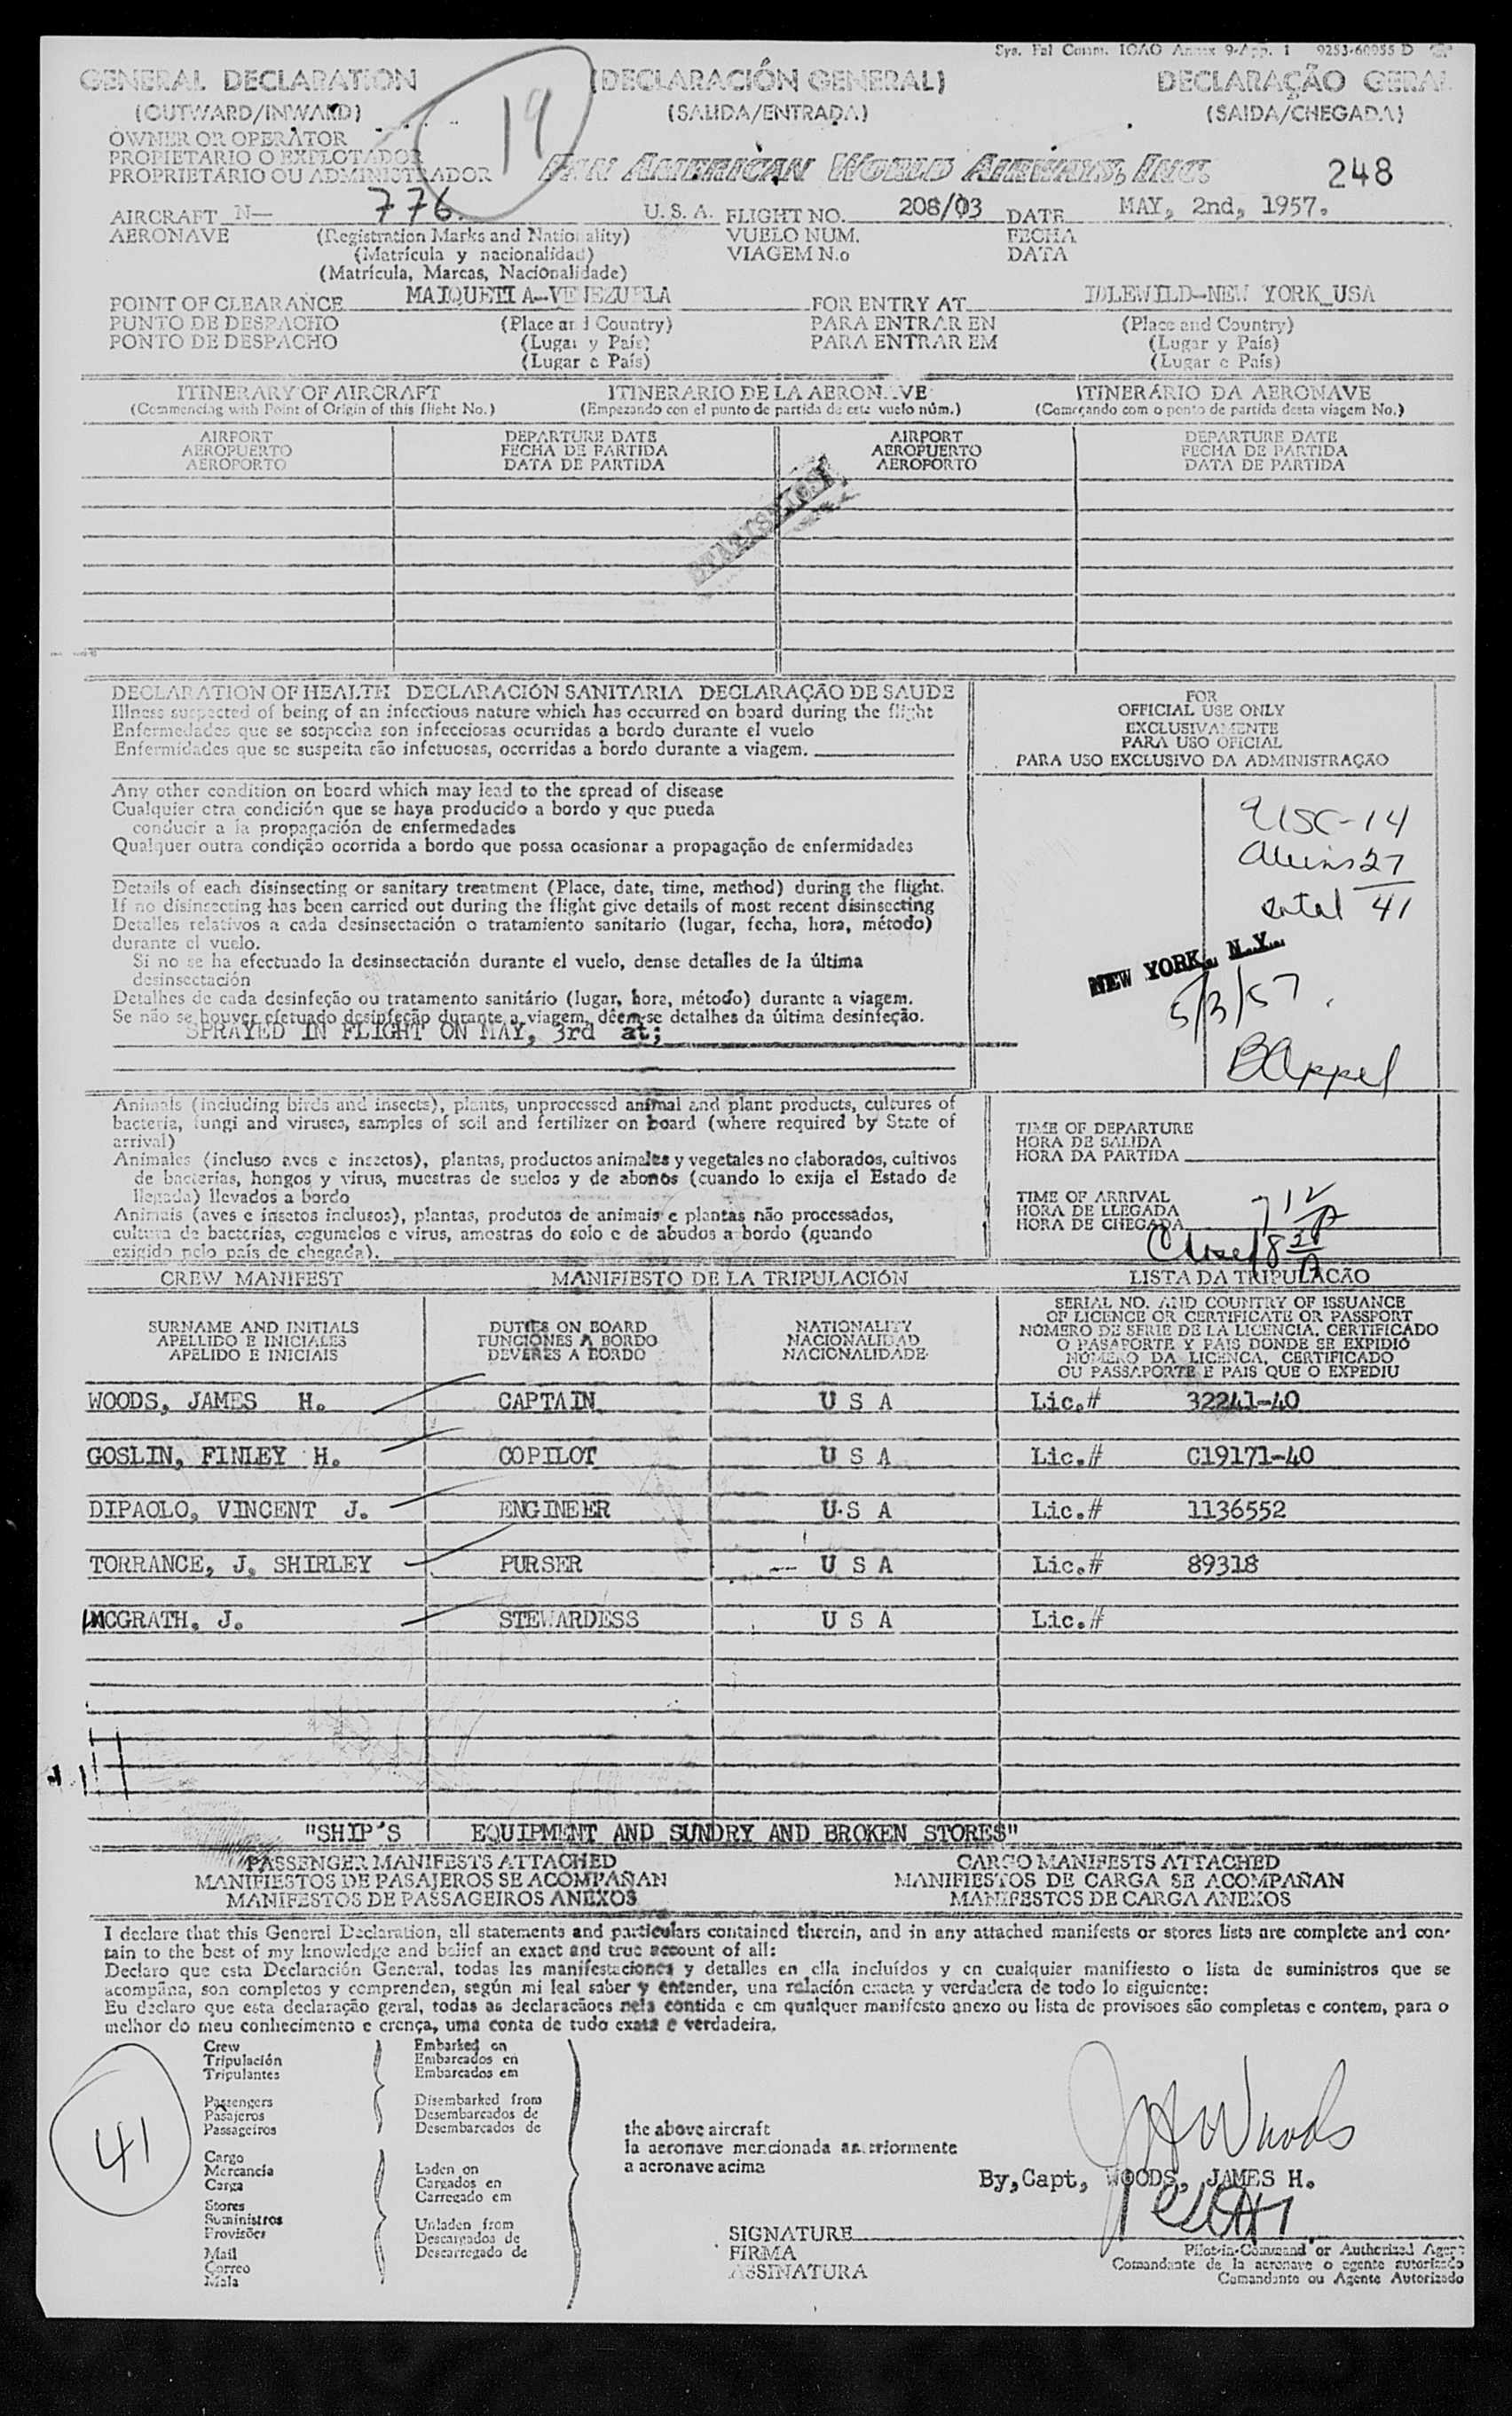 Sys. Fal Comm. ICAO Annex 9-App. 1 9253-60955 D
GENERAL DECLARATION (DECLARACIÓN GENERAL) DECLARAÇÃO GERAL
(OUTWARD/INWARD) (SALIDA/ENTRADA) (SAIDA/CHEGADA)
19
OWNER OR OPERATOR
PROPIETARIO O EXPLOTADOR
PROPRIETÁRIO OU ADMINISTRADOR PAN AMERICAN WORLD AIRWAYS, INC. 248
AIRCRAFT N— 776 U. S. A. FLIGHT NO. 208/03 DATE MAY, 2nd, 1957.
AERONAVE (Registration Marks and Nationality) VUELO NUM. FECHA
(Matrícula y nacionalidad) VIAGEM N.o DATA
(Matrícula, Marcas, Nacionalidade)
POINT OF CLEARANCE MAIQUETIA-VENEZUELA FOR ENTRY AT IDLEWILD-NEW YORK_USA
PUNTO DE DESPACHO (Place and Country) PARA ENTRAR EN (Place and Country)
PONTO DE DESPACHO (Lugar y País) PARA ENTRAR EM (Lugar y País)
(Lugar e País) (Lugar e País)
ITINERARY OF AIRCRAFT ITINERARIO DE LA AERONAVE ITINERÁRIO DA AERONAVE
(Commencing with Point of Origin of this flight No.) (Empezando con el punto de partida de este vuelo núm.) (Começando com o ponto de partida desta viagem No.)
AIRPORT DEPARTURE DATE AIRPORT DEPARTURE DATE
AEROPUERTO FECHA DE PARTIDA AEROPUERTO FECHA DE PARTIDA
AEROPORTO DATA DE PARTIDA AEROPORTO DATA DE PARTIDA
DECLARATION OF HEALTH DECLARACIÓN SANITARIA DECLARAÇÃO DE SAUDE
Illness suspected of being of an infectious nature which has occurred on board during the flight
Enfermedades que se sospecha son infecciosas ocurridas a bordo durante el vuelo
Enfermidades que se suspeita são infetuosas, ocorridas a bordo durante a viagem.
Any other condition on board which may lead to the spread of disease
Cualquier otra condición que se haya producido a bordo y que pueda
conducir a la propagación de enfermedades
Qualquer outra condição ocorrida a bordo que possa ocasionar a propagação de enfermidades
Details of each disinsecting or sanitary treatment (Place, date, time, method) during the flight.
If no disinsecting has been carried out during the flight give details of most recent disinsecting
Detalles relativos a cada desinsectación o tratamiento sanitario (lugar, fecha, hora, método)
durante el vuelo.
Si no se ha efectuado la desinsectación durante el vuelo, dense detalles de la última
desinsectación
Detalhes de cada desinfeção ou tratamento sanitário (lugar, hora, método) durante a viagem.
Se não se houver efetuado desinfeção durante a viagem, dêem-se detalhes da última desinfeção.
SPRAYED IN FLIGHT ON MAY, 3rd at;
FOR
OFFICIAL USE ONLY
EXCLUSIVAMENTE
PARA USO OFICIAL
PARA USO EXCLUSIVO DA ADMINISTRAÇÃO
USC-14
Aliens 27
total 41
NEW YORK, N.Y.
5/3/57
BAppel
Animals (including birds and insects), plants, unprocessed animal and plant products, cultures of
bacteria, fungi and viruses, samples of soil and fertilizer on board (where required by State of
arrival)
Animales (incluso aves e insectos), plantas, productos animales y vegetales no elaborados, cultivos
de bacterias, hongos y virus, muestras de suelos y de abonos (cuando lo exija el Estado de
llegada) llevados a bordo
Animais (aves e insetos inclusos), plantas, produtos de animais e plantas não processados,
cultura de bacterias, cogumelos e virus, amostras do solo e de abudos a bordo (quando
exigido pelo país de chegada).
TIME OF DEPARTURE
HORA DE SALIDA
HORA DA PARTIDA
TIME OF ARRIVAL
HORA DE LLEGADA 7 12 A
HORA DE CHEGADA
CREW MANIFEST MANIFIESTO DE LA TRIPULACIÓN LISTA DA TRIPULACÃO
SURNAME AND INITIALS DUTIES ON BOARD NATIONALITY SERIAL NO. AND COUNTRY OF ISSUANCE
APELLIDO E INICIALES FUNCIONES A BORDO NACIONALIDAD OF LICENCE OR CERTIFICATE OR PASSPORT
APELIDO E INICIAIS DEVERES A BORDO NACIONALIDADE NÚMERO DE SERIE DE LA LICENCIA, CERTIFICADO
O PASAPORTE Y PAIS DONDE SE EXPIDIÓ
NÚMERO DA LICENCA, CERTIFICADO
OU PASSAPORTE E PAIS QUE O EXPEDIU
WOODS, JAMES H. CAPTAIN U S A Lic.# 32241-40
GOSLIN, FINLEY H. COPILOT U S A Lic.# C19171-40
DIPAOLO, VINCENT J. ENGINEER U S A Lic.# 1136552
TORRANCE, J. SHIRLEY PURSER U S A Lic.# 89318
MCGRATH, J. STEWARDESS U S A Lic.#
"SHIP'S EQUIPMENT AND SUNDRY AND BROKEN STORES"
PASSENGER MANIFESTS ATTACHED CARGO MANIFESTS ATTACHED
MANIFIESTOS DE PASAJEROS SE ACOMPAÑAN MANIFIESTOS DE CARGA SE ACOMPAÑAN
MANIFESTOS DE PASSAGEIROS ANEXOS MANIFESTOS DE CARGA ANEXOS
I declare that this General Declaration, all statements and particulars contained therein, and in any attached manifests or stores lists are complete and con-
tain to the best of my knowledge and belief an exact and true account of all:
Declaro que esta Declaración General, todas las manifestaciones y detalles en ella incluídos y en cualquier manifiesto o lista de suministros que se
acompaña, son completos y comprenden, según mi leal saber y entender, una relación exacta y verdadera de todo lo siguiente:
Eu declaro que esta declaração geral, todas as declaracãoes nela contida e em qualquer manifesto anexo ou lista de provisoes são completas e contem, para o
melhor do meu conhecimento e crença, uma conta de tudo exata e verdadeira.
41
Crew Embarked on
Tripulación Embarcados en
Tripulantes Embarcados em
Passengers Disembarked from
Pasajeros Desembarcados de
Passageiros Desembarcados de
the above aircraft
la aeronave mencionada anteriormente
a aeronave acima
Cargo
Mercancía Laden on
Carga Cargados en
Carregado em
Stores
Suministros
Provisões
Unladen from
Descargados de
Descarregado de
Mail
Correo
Mala
JHWoods
By,Capt, WOODS, JAMES H.
SIGNATURE
FIRMA
ASSINATURA
Pilot-in-Command or Authorized Agent
Comandante de la aeronave o agente autorizado
Comandante ou Agente Autorizado